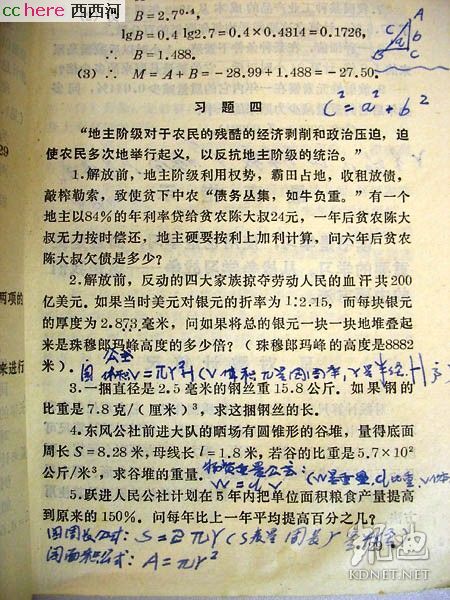 cchere 西西河
B=2.7^0.4,
lgB=0.4 lg2.7=0.4×0.4314=0.1726,
∴ B=1.488.
(3) ∴ M=A+B=-28.99+1.488=-27.50.
A
C
b
a
B
C
c²=a²+b²
习题四
“地主阶级对于农民的残酷的经济剥削和政治压迫，迫
使农民多次地举行起义，以反抗地主阶级的统治。”
1.解放前，地主阶级利用权势，霸田占地，收租放债，
敲榨勒索，致使贫下中农“债务丛集，如牛负重。”有一个
地主以84%的年利率贷给贫农陈大叔24元，一年后贫农陈大
叔无力按时偿还，地主硬要按利上加利计算，问六年后贫农
陈大叔欠债是多少？
2.解放前，反动的四大家族掠夺劳动人民的血汗共200
亿美元。如果当时美元对银元的折率为1:2.15，而每块银元
的厚度为2.873毫米，问如果将总的银元一块一块地堆叠起
来是珠穆郎玛峰高度的多少倍？（珠穆郎玛峰的高度是8882
米）.
公式
V=πr²H (V体积 π是圆周率, r是半径 H高
3.一捆直径是2.5毫米的钢丝重15.8公斤。如果钢的
比重是7.8克/（厘米）³，求这捆钢丝的长.
4.东风公社前进大队的晒场有圆锥形的谷堆，量得底面
周长S=8.28米，母线长l=1.8米，若谷的比重是5.7×10²
公斤/米³，求谷堆的重量.
物资重量公式:
W=d.V
(W是重量, d比重, V体
5.跃进人民公社计划在5年内把单位面积粮食产量提高
到原来的150%．问每年比上一年平均提高百分之几？
圆周长公式: S=2πr (S表是圆长 r
圆面积公式: A=πr²
29
两项的
来进行
凯迪
KDNET.NET